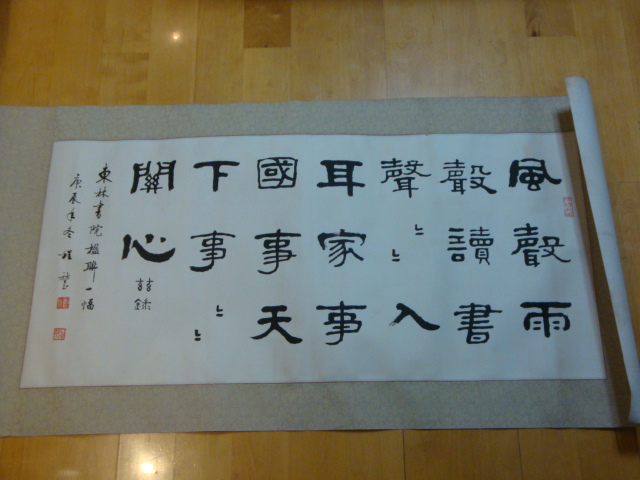 風聲雨
聲讀書
聲〻〻入
耳家事
國事天
下事〻〻
關心
茲錄
東林書院楹聯一幅
庚辰年冬